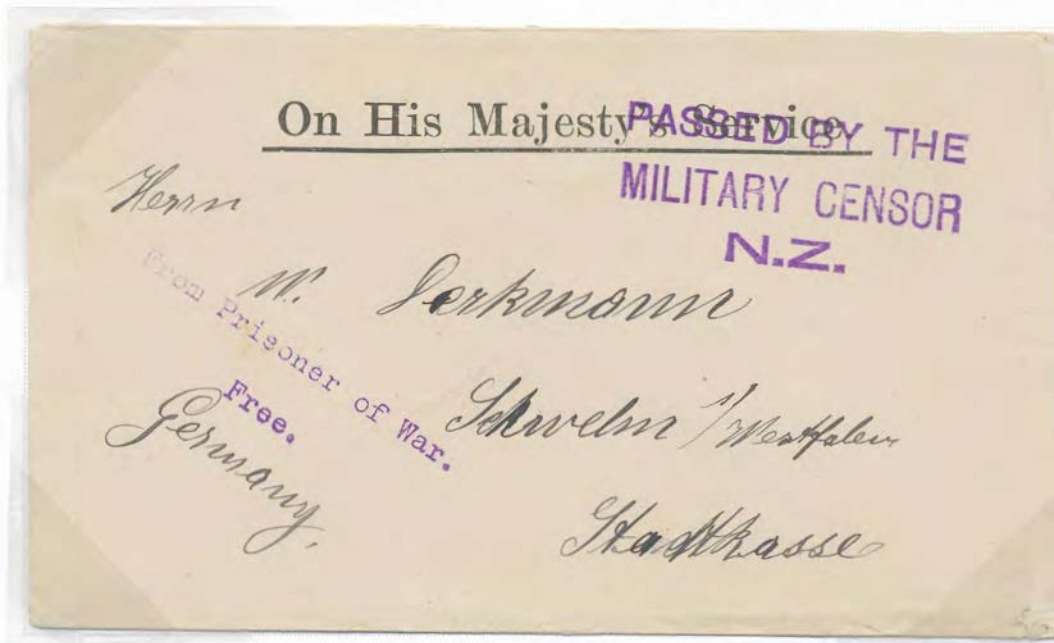 On His Majesty's Service
PASSED BY THE
MILITARY CENSOR
N.Z.
Herrn
W. Derkmann
From Prisoner of War.
Free.
Schwelm i/Westfalen
Germany.
Stadtkasse